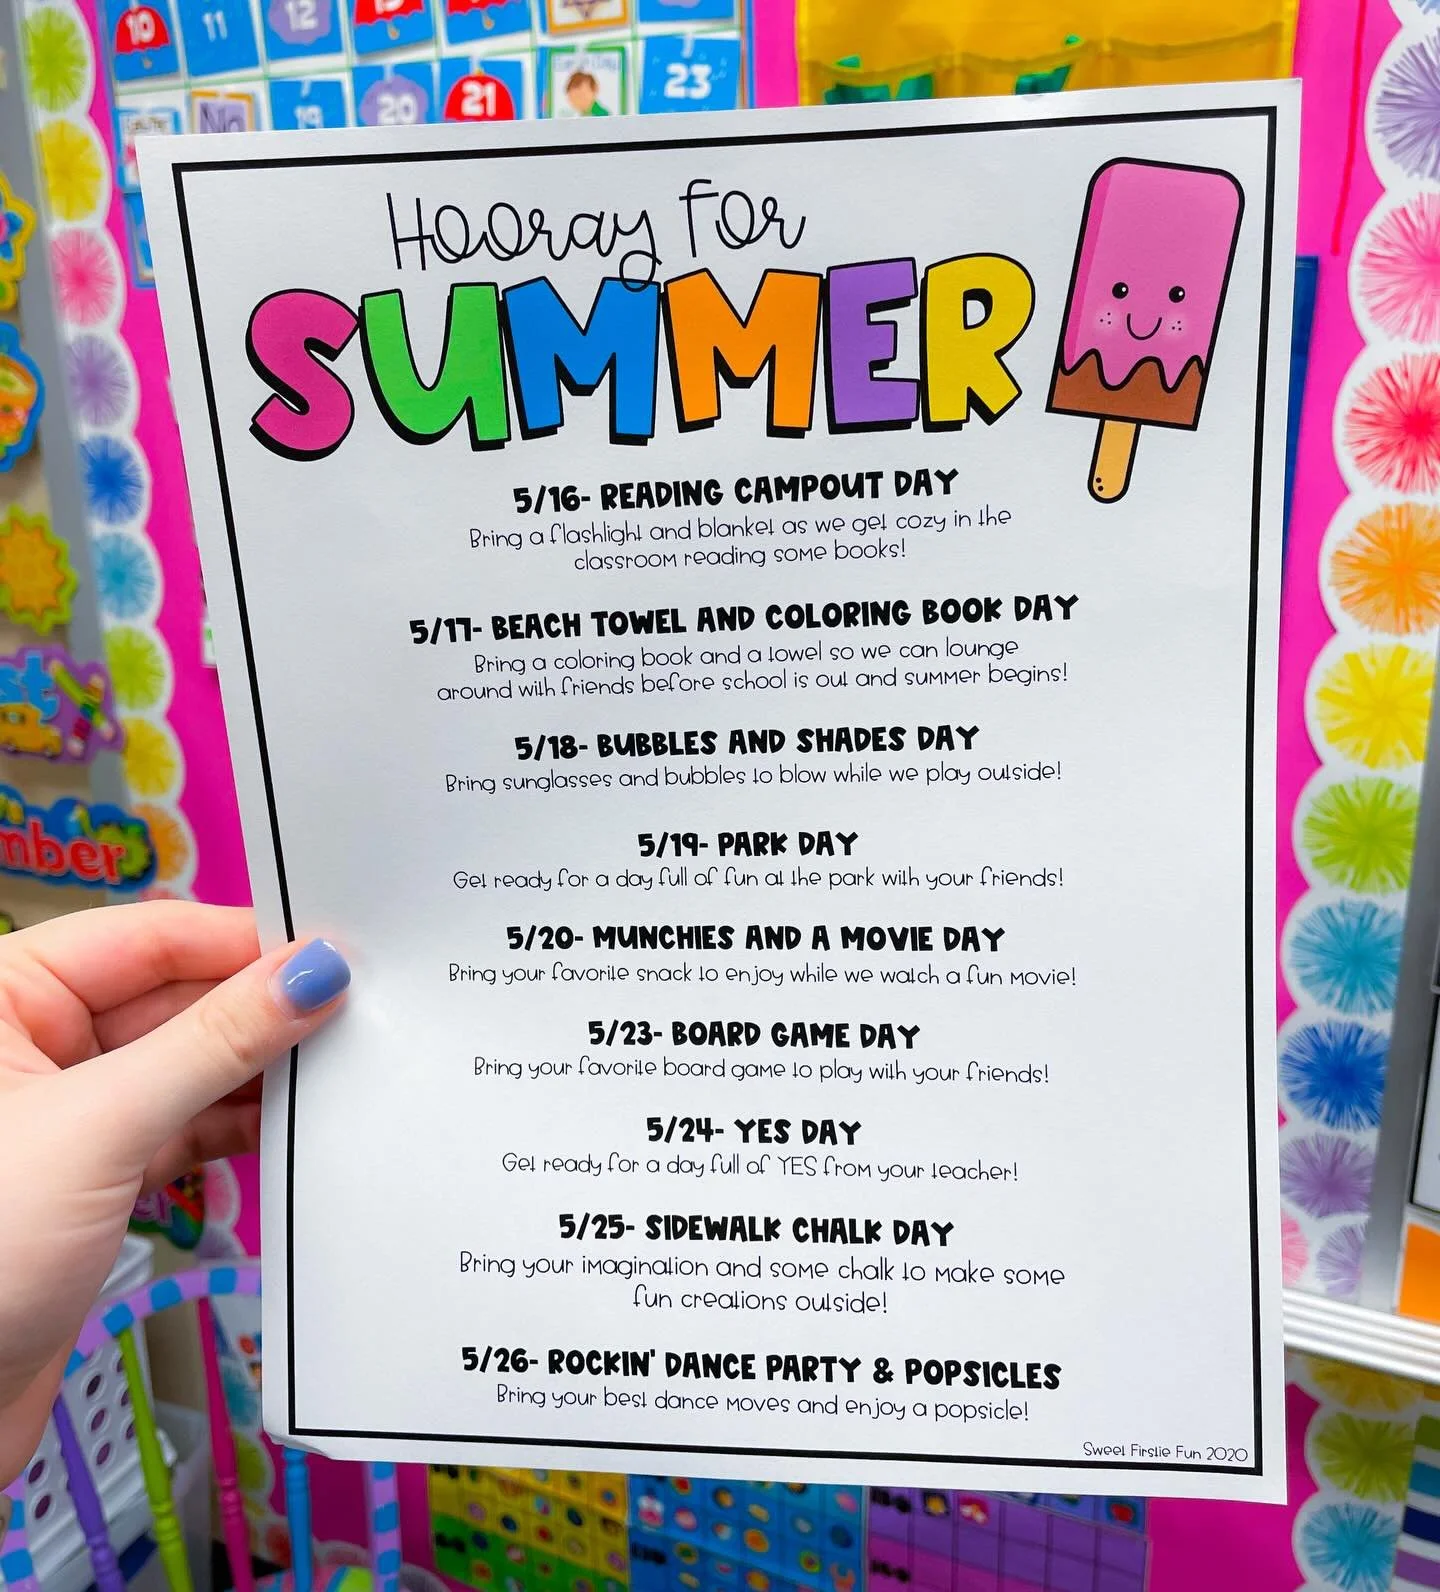 10 11 12 13
No 19 20 21 23
Hooray for
SUMMER
5/16- READING CAMPOUT DAY
Bring a flashlight and blanket as we get cozy in the
classroom reading some books!
5/17- BEACH TOWEL AND COLORING BOOK DAY
Bring a coloring book and a towel so we can lounge
around with friends before school is out and summer begins!
5/18- BUBBLES AND SHADES DAY
Bring sunglasses and bubbles to blow while we play outside!
5/19- PARK DAY
Get ready for a day full of fun at the park with your friends!
5/20- MUNCHIES AND A MOVIE DAY
Bring your favorite snack to enjoy while we watch a fun movie!
5/23- BOARD GAME DAY
Bring your favorite board game to play with your friends!
5/24- YES DAY
Get ready for a day full of YES from your teacher!
5/25- SIDEWALK CHALK DAY
Bring your imagination and some chalk to make some
fun creations outside!
5/26- ROCKIN' DANCE PARTY & POPSICLES
Bring your best dance moves and enjoy a popsicle!
Sweet Firstie Fun 2020
st
mber